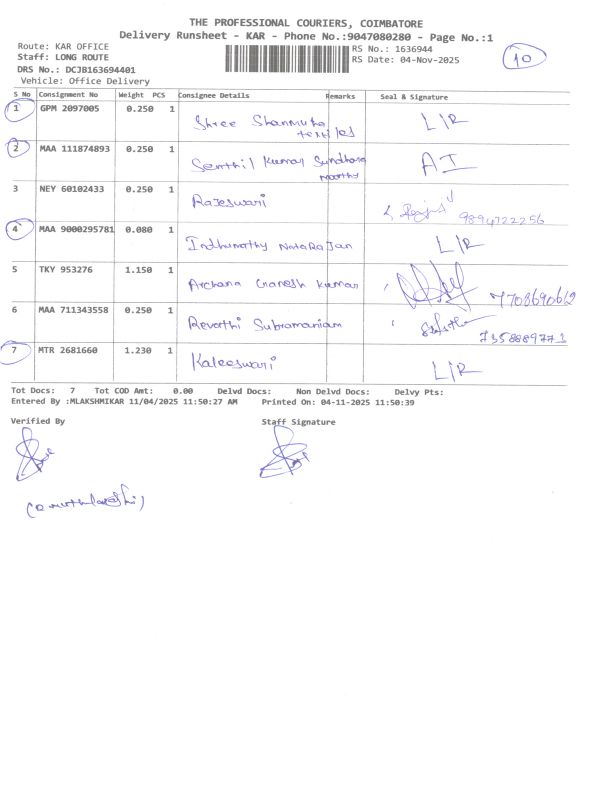 THE PROFESSIONAL COURIERS, COIMBATORE
Delivery Runsheet - KAR - Phone No.:9047080280 - Page No.:1
Route: KAR OFFICE
RS No.: 1636944
10
Staff: LONG ROUTE
RS Date: 04-Nov-2025
DRS No.: DCJB163694401
Vehicle: Office Delivery
S No Consignment No Weight PCS Consignee Details Remarks Seal & Signature
1 GPM 2097005 0.250 1 Shree Shanmuka textiles L/R
2 MAA 111874893 0.250 1 Senthil Kumar Sundhara moorthy AI
3 NEY 60102433 0.250 1 Rajeswari 9894722256
4 MAA 9000295781 0.080 1 Indhumathy Natarajan L/R
5 TKY 953276 1.150 1 Archana Ganesh Kumar 7708690612
6 MAA 711343558 0.250 1 Revathi Subramaniam 7358889773
7 MTR 2681660 1.230 1 Kaleeswari L/R
Tot Docs: 7 Tot COD Amt: 0.00 Delvd Docs: Non Delvd Docs: Delvy Pts:
Entered By :MLAKSHMIKAR 11/04/2025 11:50:27 AM Printed On: 04-11-2025 11:50:39
Verified By Staff Signature